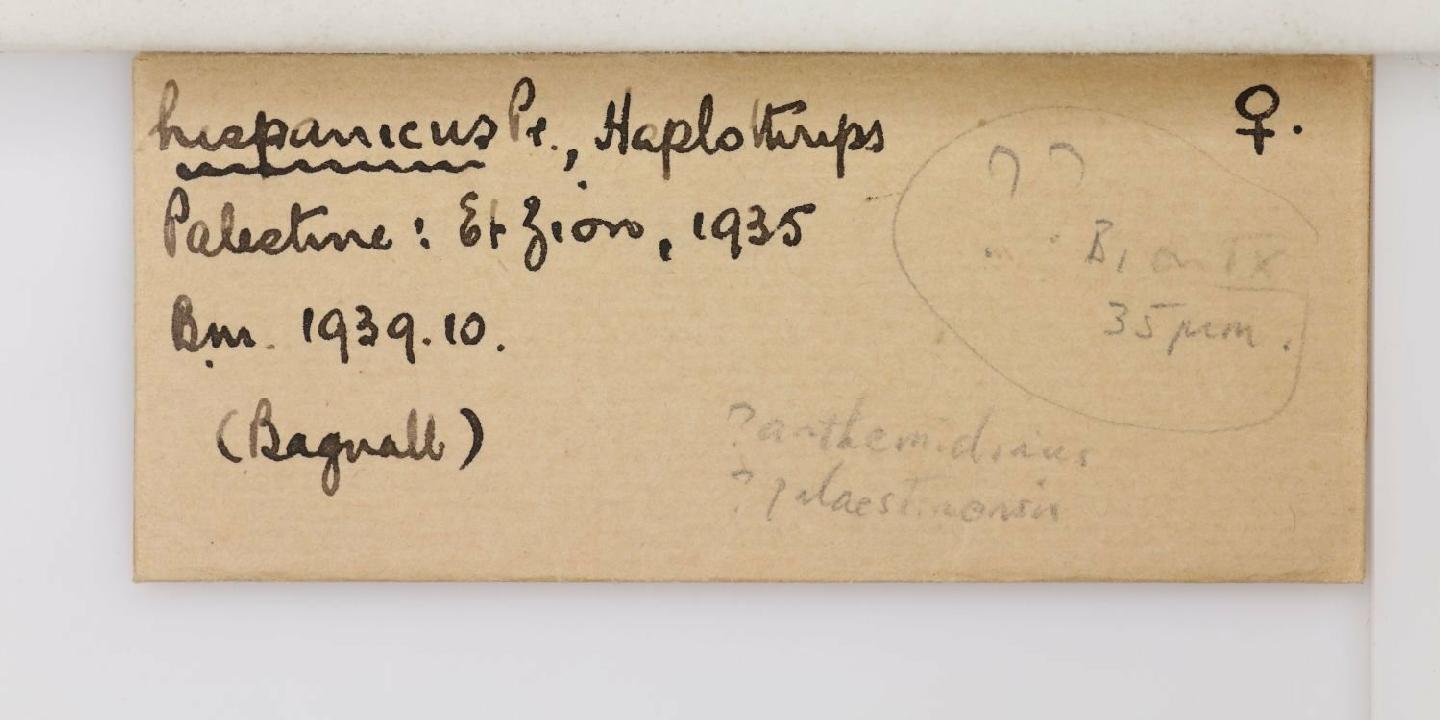 hispanicus Pr., Haplothrips ♀.
Palestine: Et Zion, 1935
Bm. 1939.10.
(Bagnall)
? ?
B1 on IX
35 µm.
? anthemidinus
? palaestinensis